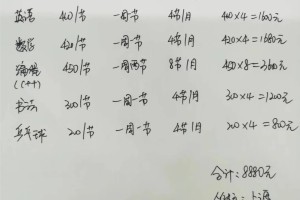 英语 400/节 一周一节 4节/月 400×4=1600元
数学 420/节 一周一节 4节/月 420×4=1680元
编程 450/节 一周两节 8节/月 450×8=3600元
(C++)
书法 300/节 一周一节 4节/月 300×4=1200元
乒乓球 200/节 一周一节 4节/月 200×4=800元
合计:8880元